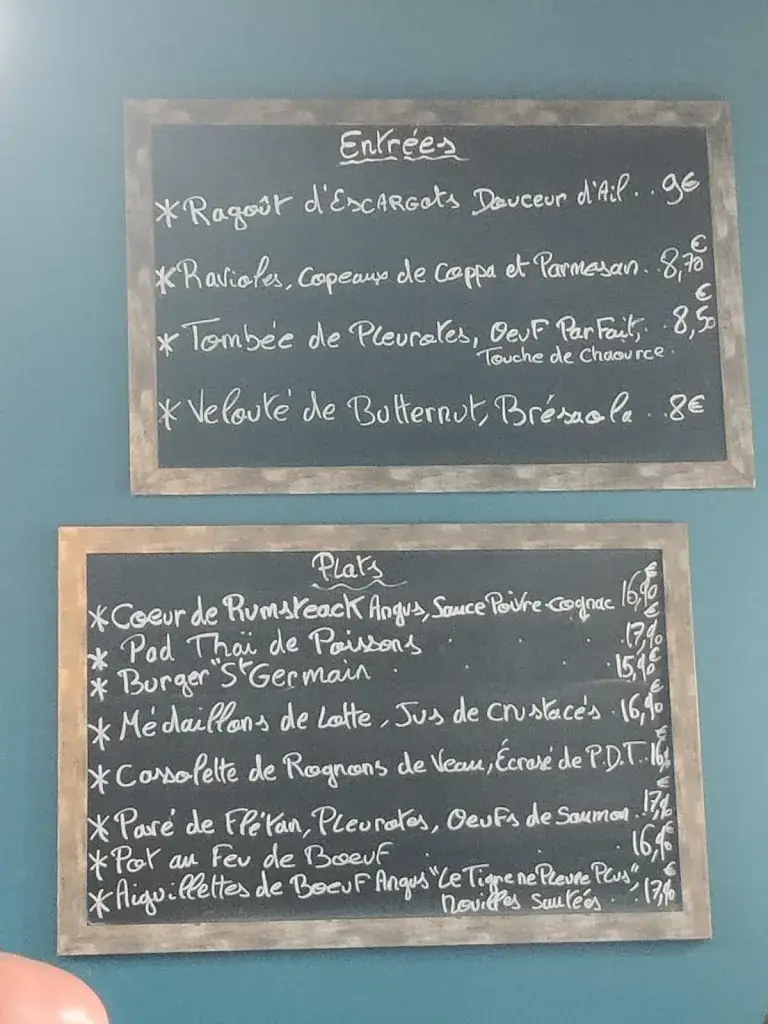 Entrées
* Ragoût d'Escargots Douceur d'Ail.. 9€
* Ravioles, Copeaux de Coppa et Parmesan. 8,70€
* Tombée de Pleurotes, Oeuf Parfait,. 8,50€
Touche de Chaource.
* Velouté de Butternut, Brésaola.. 8€
Plats
* Coeur de Rumsteack Angus, Sauce Poivre-Cognac 16,90€
* Pad Thaï de Poissons . . . 17,90€
* Burger "St Germain . . . 15,90€
* Médaillons de Lotte, Jus de Crustacés. 16,90€
* Cassolette de Rognons de Veau, Écrasé de P.D.T..
* Pavé de Flétan, Pleurotes, Oeufs de Saumon. 17,90€
* Pot au Feu de Boeuf . . . 16,90€
* Aiguillettes de Boeuf Angus "Le Tigre ne Pleure Plus", 17,90€
Nouilles Sautées.